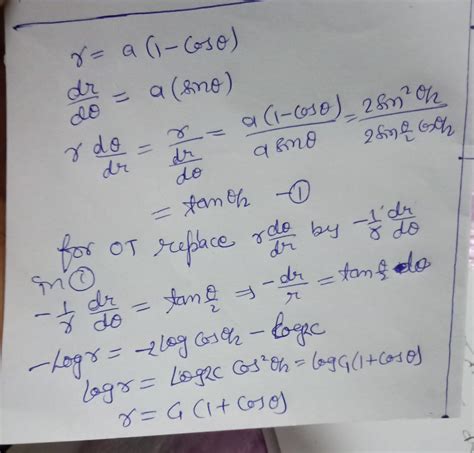 r = a(1-cosθ)
dr/dθ = a(sinθ)
r dθ/dr = r/(dr/dθ) = a(1-cosθ)/(a sinθ) = 2sin²θ/2 / (2sin θ/2 cosθ/2)
= tanθ/2 -①
for OT replace r dθ/dr by -1/r dr/dθ
in ①
-1/r dr/dθ = tan θ/2 ⇒ -dr/r = tan θ/2 dθ
-Logr = -2Log cosθ/2 - Log2c
Logr = Log2c cos²θ/2 = LogC₁(1+cosθ)
r = C₁(1+cosθ)